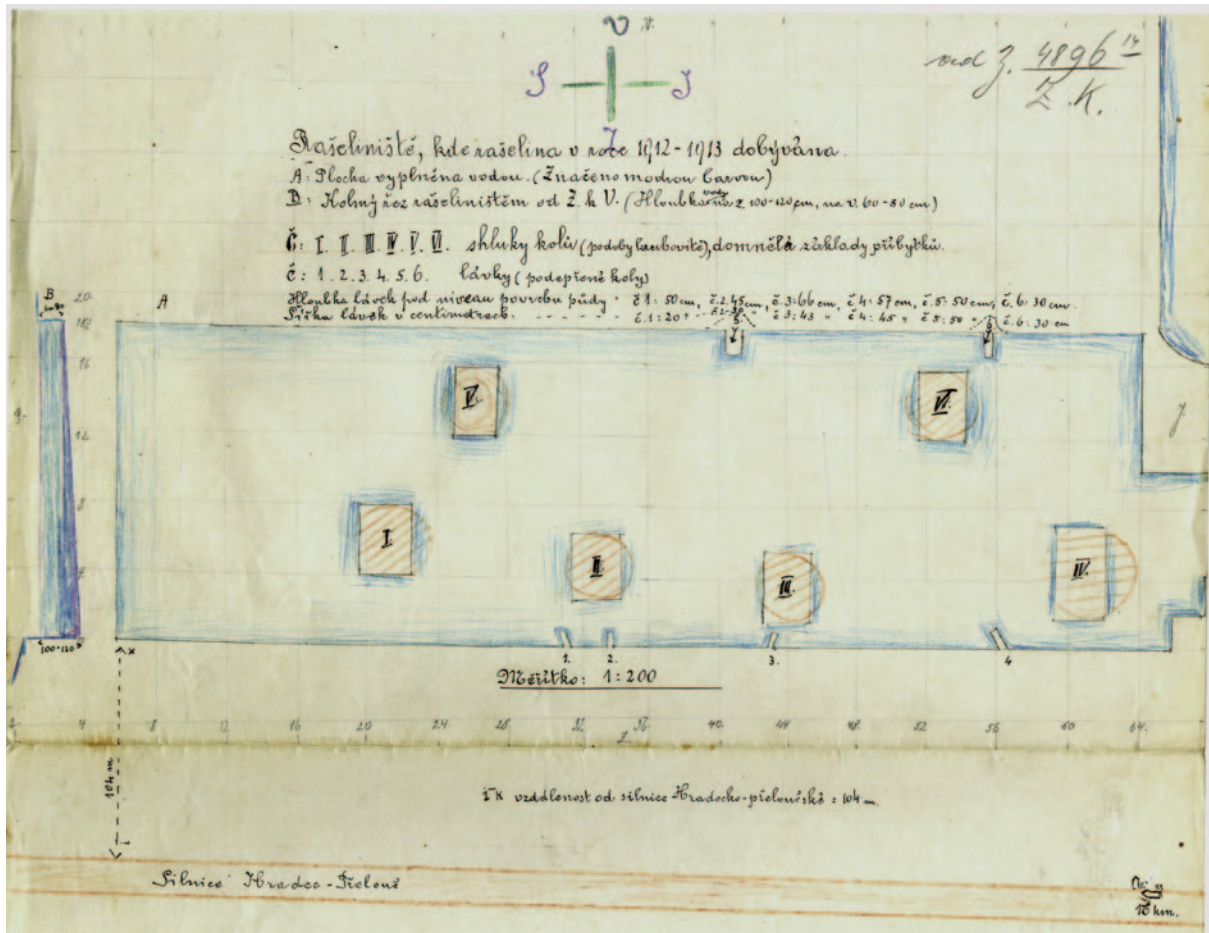 V
S J
Z
ad Z. 4896 14
Z. K.
Rašeliniště, kde rašelina v roce 1912-1913 dobývána.
A: Plocha vyplněna vodou. (Značeno modrou barvou)
B: Kolmý řez rašeliništěm od Z. k V. (Hloubka vody na Z 100-120 cm, na V. 60-80 cm)
Č: I. II. III. IV. V. VI. shluky kolů (podoby), domnělá základy příbytků.
č: 1. 2. 3. 4. 5. 6. lávky (podepřené koly)
Hloubka lávek pod niveau povrchu půdy: č 1: 50 cm, č. 2. 45 cm, č. 3: 66 cm, č 4: 57 cm, č. 5: 50 cm, č. 6: 30 cm.
Šířka lávek v centimetrech: č. 1: 20 " č. 3: 43 " č 4: 45 " č 5: 50 " č. 6: 30 cm
B
20
A
18
5 6
16
V. VI.
9.
J.
12
8
I. II. III. IV.
100-120
x
1. 2. 3. 4
Měřítko: 1:200
4 8 12 16 20 24 28 32 36 40 44 48 52 56 60 64
Z
104 m
x vzdálenost od silnice Hradecko-přeloučské = 104 m.
Silnice Hradec-Přelouč
16 km.